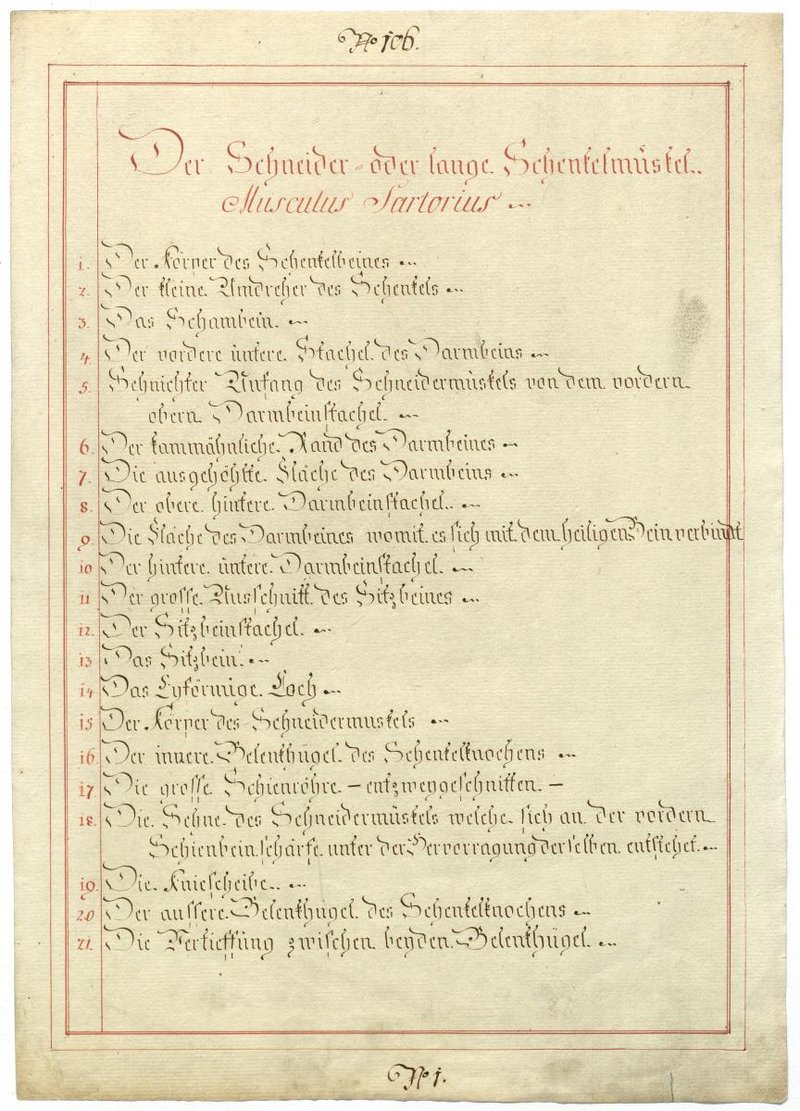 No 106.
Der Schneider- oder lange Schenkelmüskel..
Musculus Sartorius
1. Der Körper des Schenkelbeines
2. Der kleine Umdreher des Schenkels
3. Das Schambein.
4. Der vordere untere Stachel des Darmbeins
5. Sehnichter Anfang des Schneidermüskels von dem vordern
obern Darmbeinstachel.
6. Der kammähnliche Rand des Darmbeines
7. Die ausgehöhlte Fläche des Darmbeins
8. Der obere hintere Darmbeinstachel..
9. Die Fläche des Darmbeines womit es sich mit dem heiligen Bein verbindt
10 Der hintere untere Darmbeinstachel.
11 Der grosse Ausschnitt des Sitzbeines
12. Der Sitzbeinstachel.
13 Das Sitzbein.
14 Das Eyförmige Loch
15 Der Körper des Schneidermuskels
16 Der innere Gelenkhügel des Schenkelknochens
17 Die grosse Schienröhre – entzweygeschnitten. –
18. Die Sehne des Schneidermüskels welche sich an der vordern
Schienbeinschärfe unter der Hervorragung derselben entstehet.
19. Die Kniescheibe..
20 Der aussere Gelenkhügel des Schenkelknochens
21. Die Vertieffung zwischen beyden Gelenkhügel.
No 1.